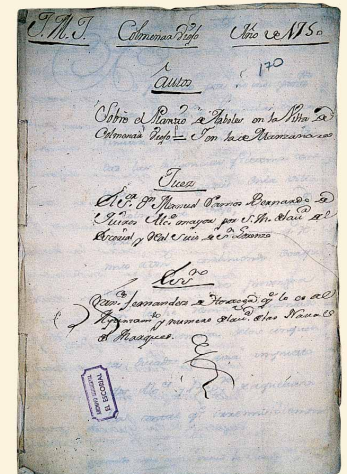 J. M. J. Colmenar Viejo Año de 1750
170
Autos
Sobre el Plantio de Arboles en la Villa de
Colmenar Viejo = Y en la de Manzanares
Juez
El Sr. Dn. Manuel Ramos Bernardo de
Quiros Alce. mayor por S. M. de la Va. del
Escorial y Real Sitio de Sn. Lorenzo
Essno
Franco. Fernandez de qe. lo es del
Ayuntamto. y numero de la Va. de las Navas
de Marques
ARCHIVO MUNICIPAL
EL ESCORIAL